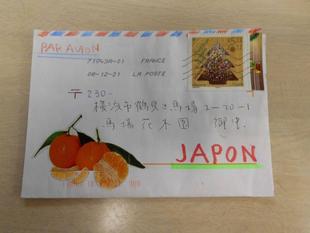 PAR AVION
71043A-01 FRANCE
08-12-21 LA POSTE
〒230-
横浜市鶴見区馬場2-20-1
馬場花木園 御中
JAPON